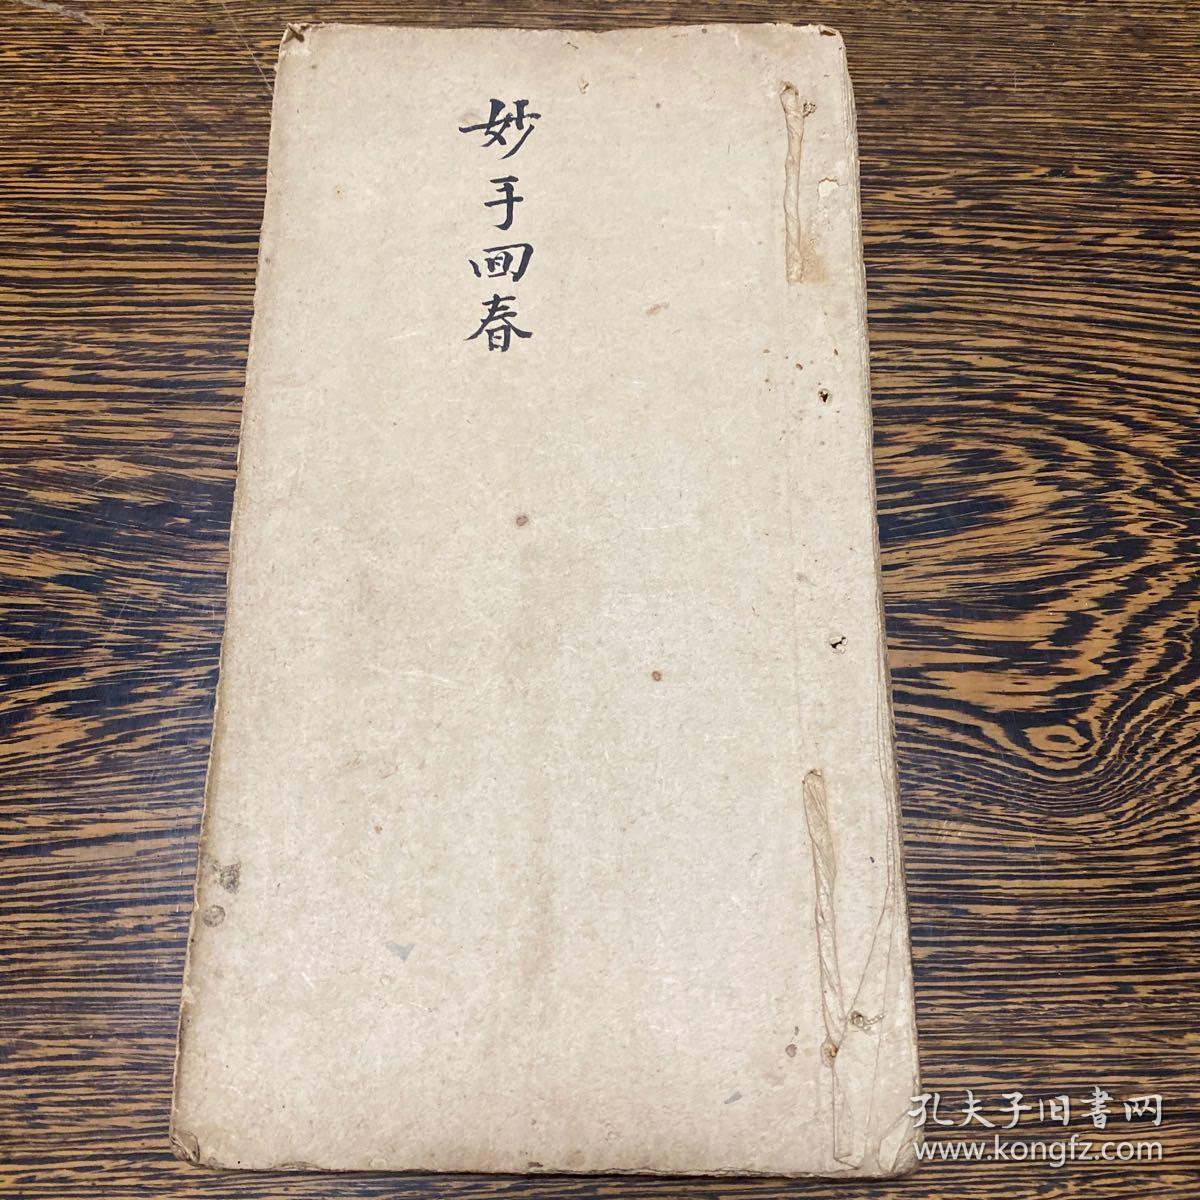 妙手回春
孔夫子旧書网
www.kongfz.com